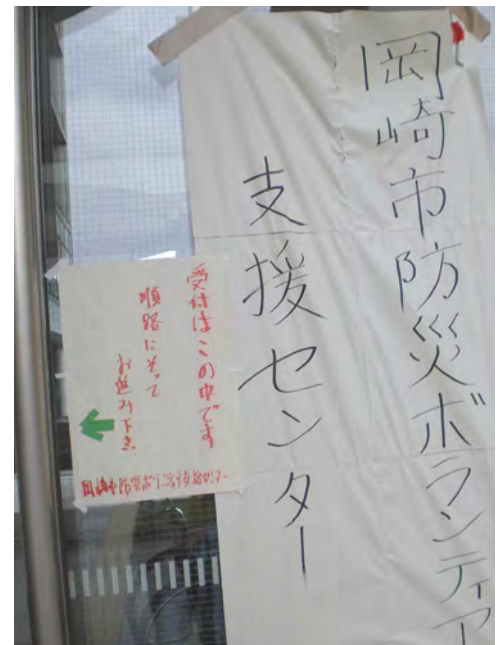 岡崎市防災ボランティア
支援センター
受付はこの中です
順路にそって
お進み下さい
岡崎市防災ボランティア支援センター